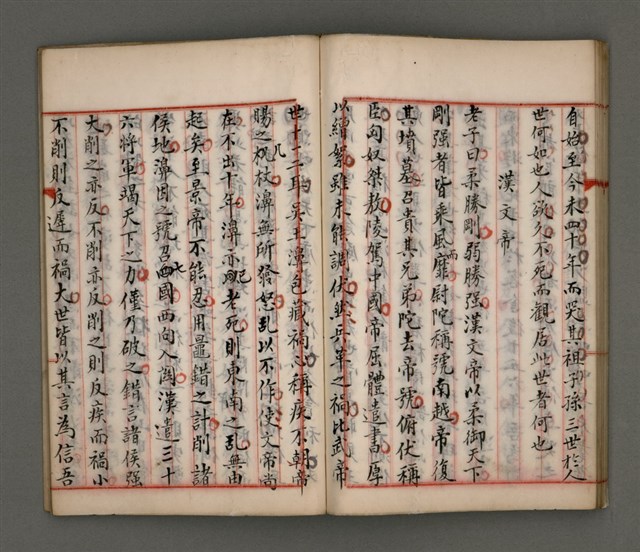 自始至今未四十年而哭其祖子孫三世於人
世何如也人欲久不死而觀居此世者何也
漢文帝
老子曰柔勝剛弱勝强漢文帝以柔御天下
剛强者皆乘風而靡尉陀稱號南越帝復
其墳墓召貴其兄弟陀去帝號俯伏稱
臣匈奴桀敖陵駕中國帝屈體遣書厚
以繒絮雖未能調伏然兵革之禍比武帝
世十一二耳吳王濞包藏禍心稱疾不朝帝
賜之几杖濞無所發怒乱以不作使文帝尚
在不出十年濞亦已老死則東南之乱無由
起矣至景帝不能忍用鼂錯之計削諸
侯地濞因之號召七國西向入関漢遣三十
六將軍竭天下之力僅乃破之錯言諸侯强
大削之亦反不削亦反削之則反疾而禍小
不削則反遲而禍大世皆以其言為信吾